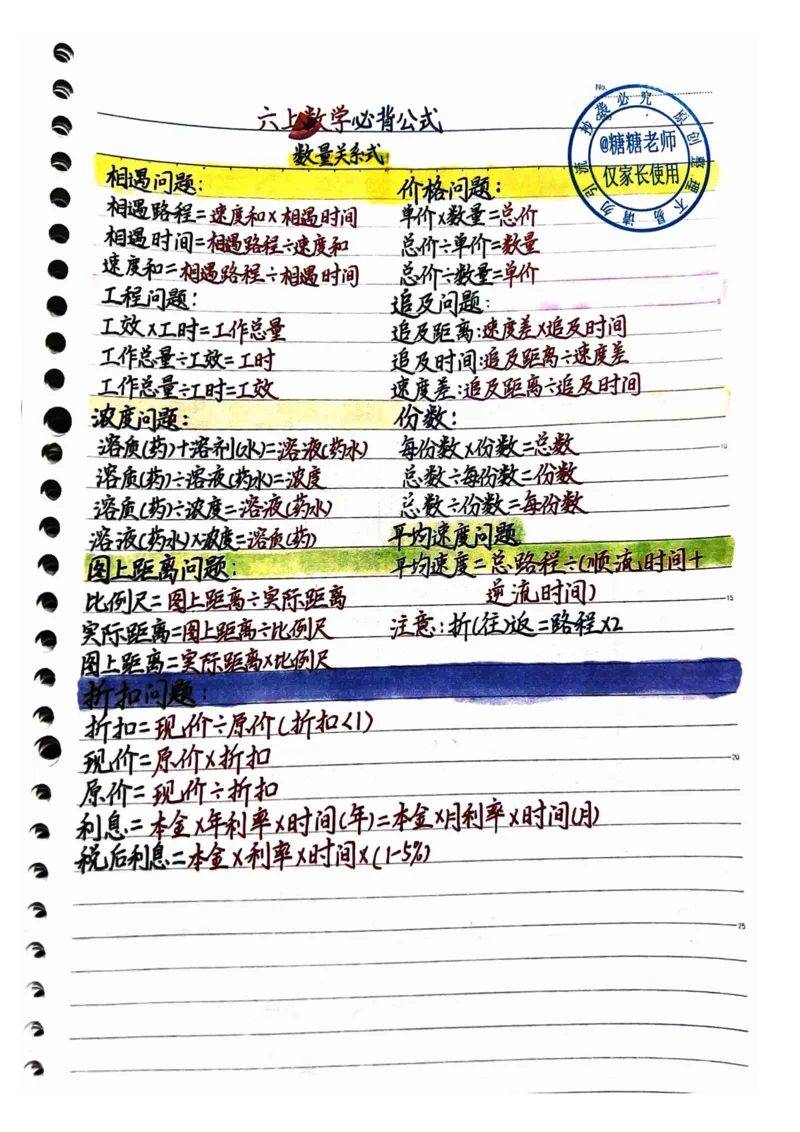 No.
六上数学必背公式
数量关系式
抄袭必究 原创整理 不易请勿引流
@糖糖老师
仅家长使用
相遇问题:
相遇路程=速度和×相遇时间
相遇时间=相遇路程÷速度和
速度和=相遇路程÷相遇时间
工程问题:
工效×工时=工作总量
工作总量÷工效=工时
工作总量÷工时=工效
浓度问题:
溶质(药)+溶剂(水)=溶液(药水)
溶质(药)÷溶液(药水)=浓度
溶质(药)÷浓度=溶液(药水)
溶液(药水)×浓度=溶质(药)
图上距离问题:
比例尺=图上距离÷实际距离
实际距离=图上距离÷比例尺
图上距离=实际距离×比例尺
价格问题:
单价×数量=总价
总价÷单价=数量
总价÷数量=单价
追及问题:
追及距离:速度差×追及时间
追及时间:追及距离÷速度差
速度差:追及距离÷追及时间
份数:
每份数×份数=总数
总数÷每份数=份数
总数÷份数=每份数
平均速度问题
平均速度=总路程÷(顺流时间+
逆流时间)
注意:折(往)返=路程×2
折扣问题:
折扣=现价÷原价(折扣<1)
现价=原价×折扣
原价=现价÷折扣
利息=本金×年利率×时间(年)=本金×月利率×时间(月)
税后利息=本金×利率×时间×(1-5%)
5
10
15
20
25